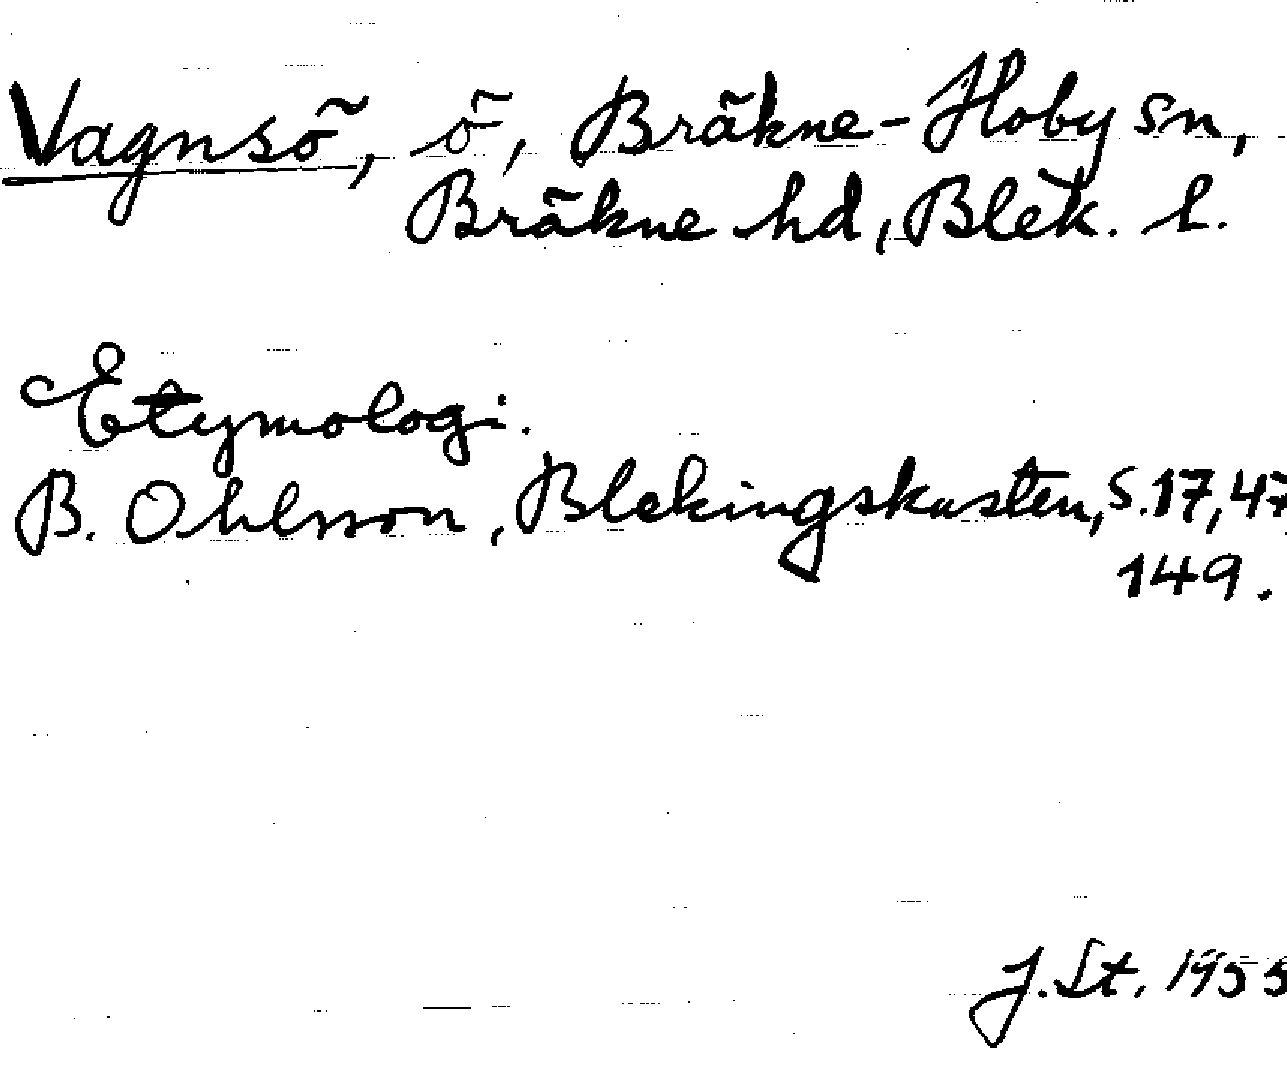 Vagnsö, ö, Bräkne-Hoby sn,
Bräkne hd, Blek. l.
Etymologi.
B. Ohlsson, Blekingskusten, s. 17, 47
149.
J. St. 1955